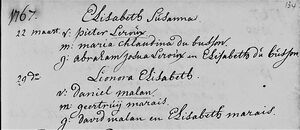 134
1767. Elisabeth Susanna
22 maart. v: pieter Leroux
m: maria chlaudina du buson
g: abraham Josua Leroux en Elisabeth du buson
29do. Leonora Elisabeth.
v: daniel malan
m: geertruij marais.
g: david malan en Elisabeth marais.